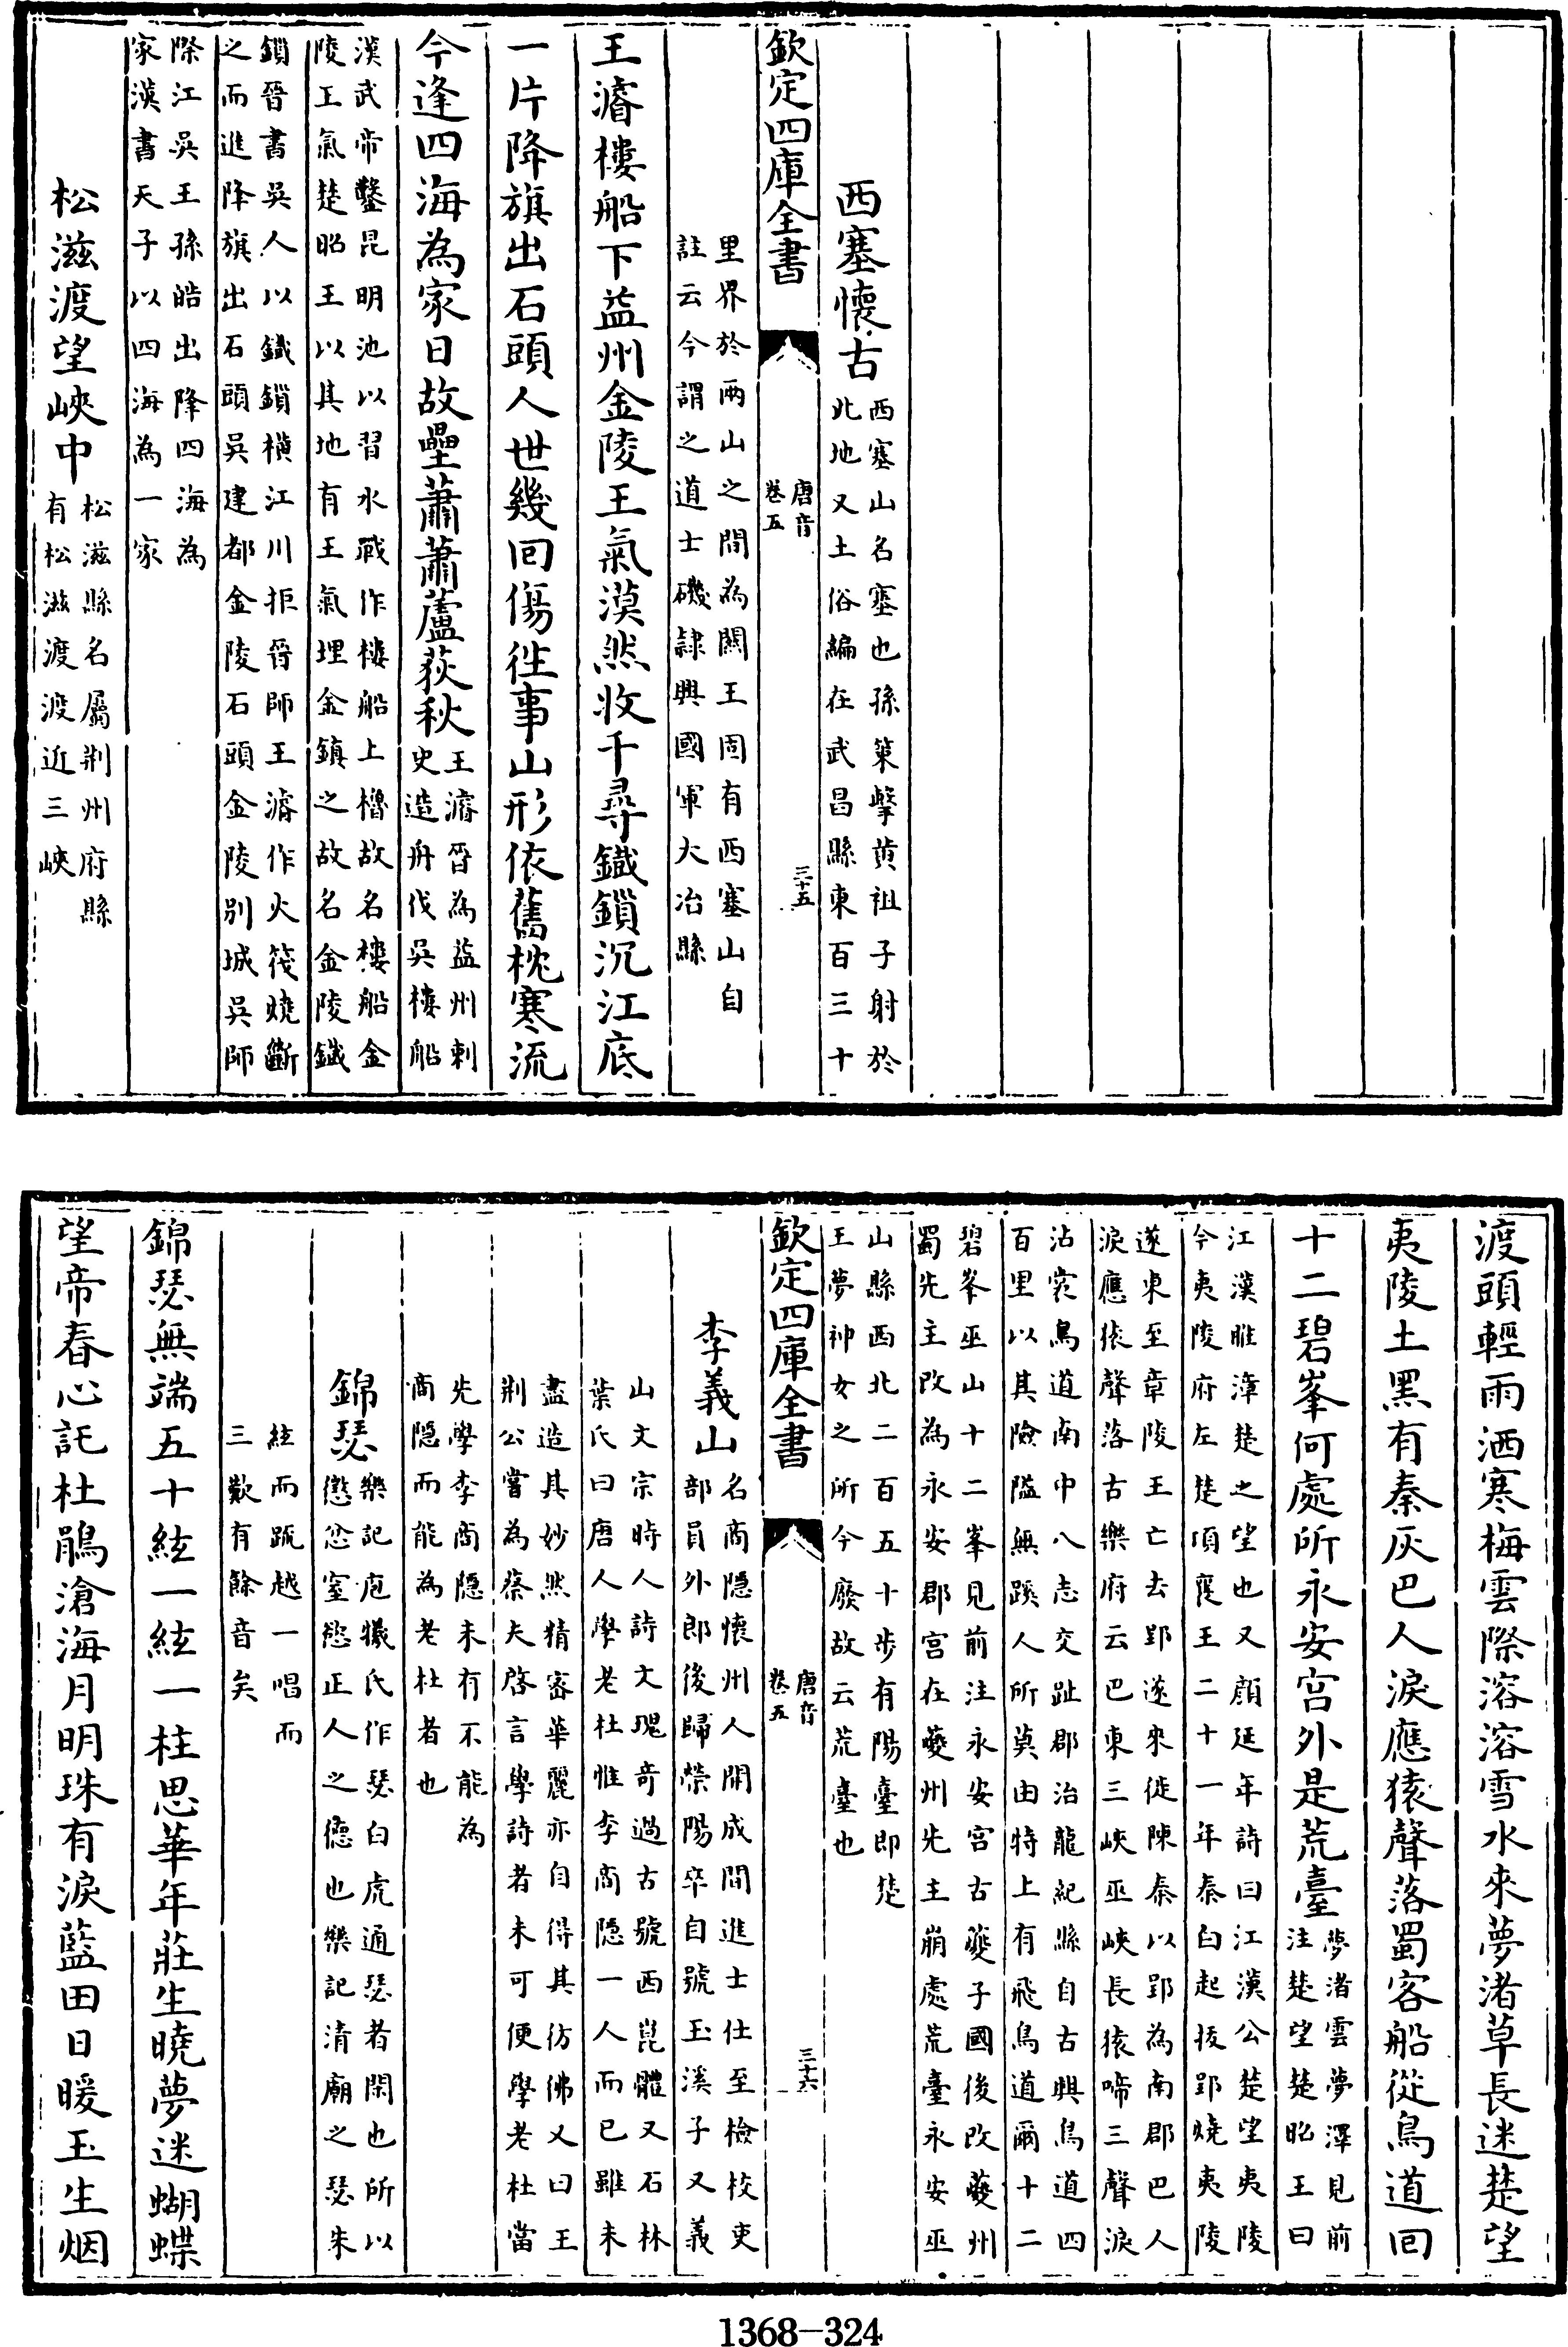 西塞懷古西塞山名塞也孫策擊黄祖子射於
北地又土俗編在武昌縣東百三十
欽定四庫全書
唐音
卷五
三十五
里界於兩山之間為闗王固有西塞山自
註云今謂之道士磯隷興國軍大冶縣
王濬樓船下益州金陵王氣漠然收千尋鐵鎖沉江底
一片降旗出石頭人世幾回傷徃事山形依舊枕寒流
今逢四海為家日故壘蕭蕭蘆荻秋王濬晉為益州刺
史造舟伐吳樓船
漢武帝鑿昆明池以習水戰作樓船上櫓故名樓船金
陵王氣楚昭王以其地有王氣埋金鎮之故名金陵鐵
鎖晉書吳人以鐵鎖橫江川拒晉師王濬作火筏燒斷
之而進降旗出石頭吳建都金陵石頭金陵别城吳師
際江吳王孫皓出降四海為
家漢書天子以四海為一家
松滋渡望峽中松滋縣名屬荆州府縣
有松滋渡渡近三峽
渡頭輕雨洒寒梅雲際溶溶雪水來夢渚草長迷楚望
夷陵土黑有秦灰巴人淚應猿聲落蜀客船從鳥道回
十二碧峯何處所永安宫外是荒臺夢渚雲夢澤見前
注楚望楚昭王曰
江漢睢漳楚之望也又顔延年詩曰江漢公楚望夷陵
今夷陵府左楚頃襄王二十一年秦白起拔郢燒夷陵
遂東至章陵王亡去郢遂來徙陳秦以郢為南郡巴人
淚應猿聲落古樂府云巴東三峽巫峽長猿啼三聲淚
沾裳鳥道南中八志交趾郡治龍紀縣自古興鳥道四
百里以其險隘無蹊人所莫由特上有飛鳥道爾十二
碧峯巫山十二峯見前注永安宫古夔子國後改夔州
蜀先主改為永安郡宫在夔州先主崩處荒臺永安巫
山縣西北二百五十步有陽臺即楚
王夢神女之所今廢故云荒臺也
欽定四庫全書
唐音
卷五
三十六
李義山名商隱懷州人開成間進士仕至檢校吏
部員外郎後歸滎陽卒自號玉溪子又義
山文宗時人詩文瑰竒過古號西崑體又石林
葉氏曰唐人學老杜惟李商隱一人而已雖未
盡造其妙然精密華麗亦自得其仿佛又曰王
荆公嘗為蔡天啓言學詩者未可便學老杜當
先學李商隱未有不能為
商隱而能為老杜者也
錦瑟樂記庖犧氏作瑟白虎通瑟者閑也所以
懲忿窒慾正人之德也樂記清廟之瑟朱
絃而疏越一唱而
三歎有餘音矣
錦瑟無端五十絃一絃一柱思華年莊生曉夢迷蝴蝶
望帝春心託杜鵑滄海月明珠有淚藍田日暖玉生烟
1368-324